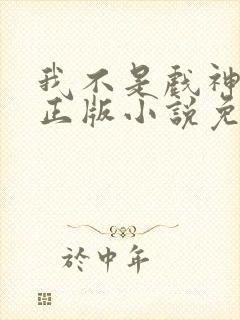 我不是戲神
正版小說免
於中年